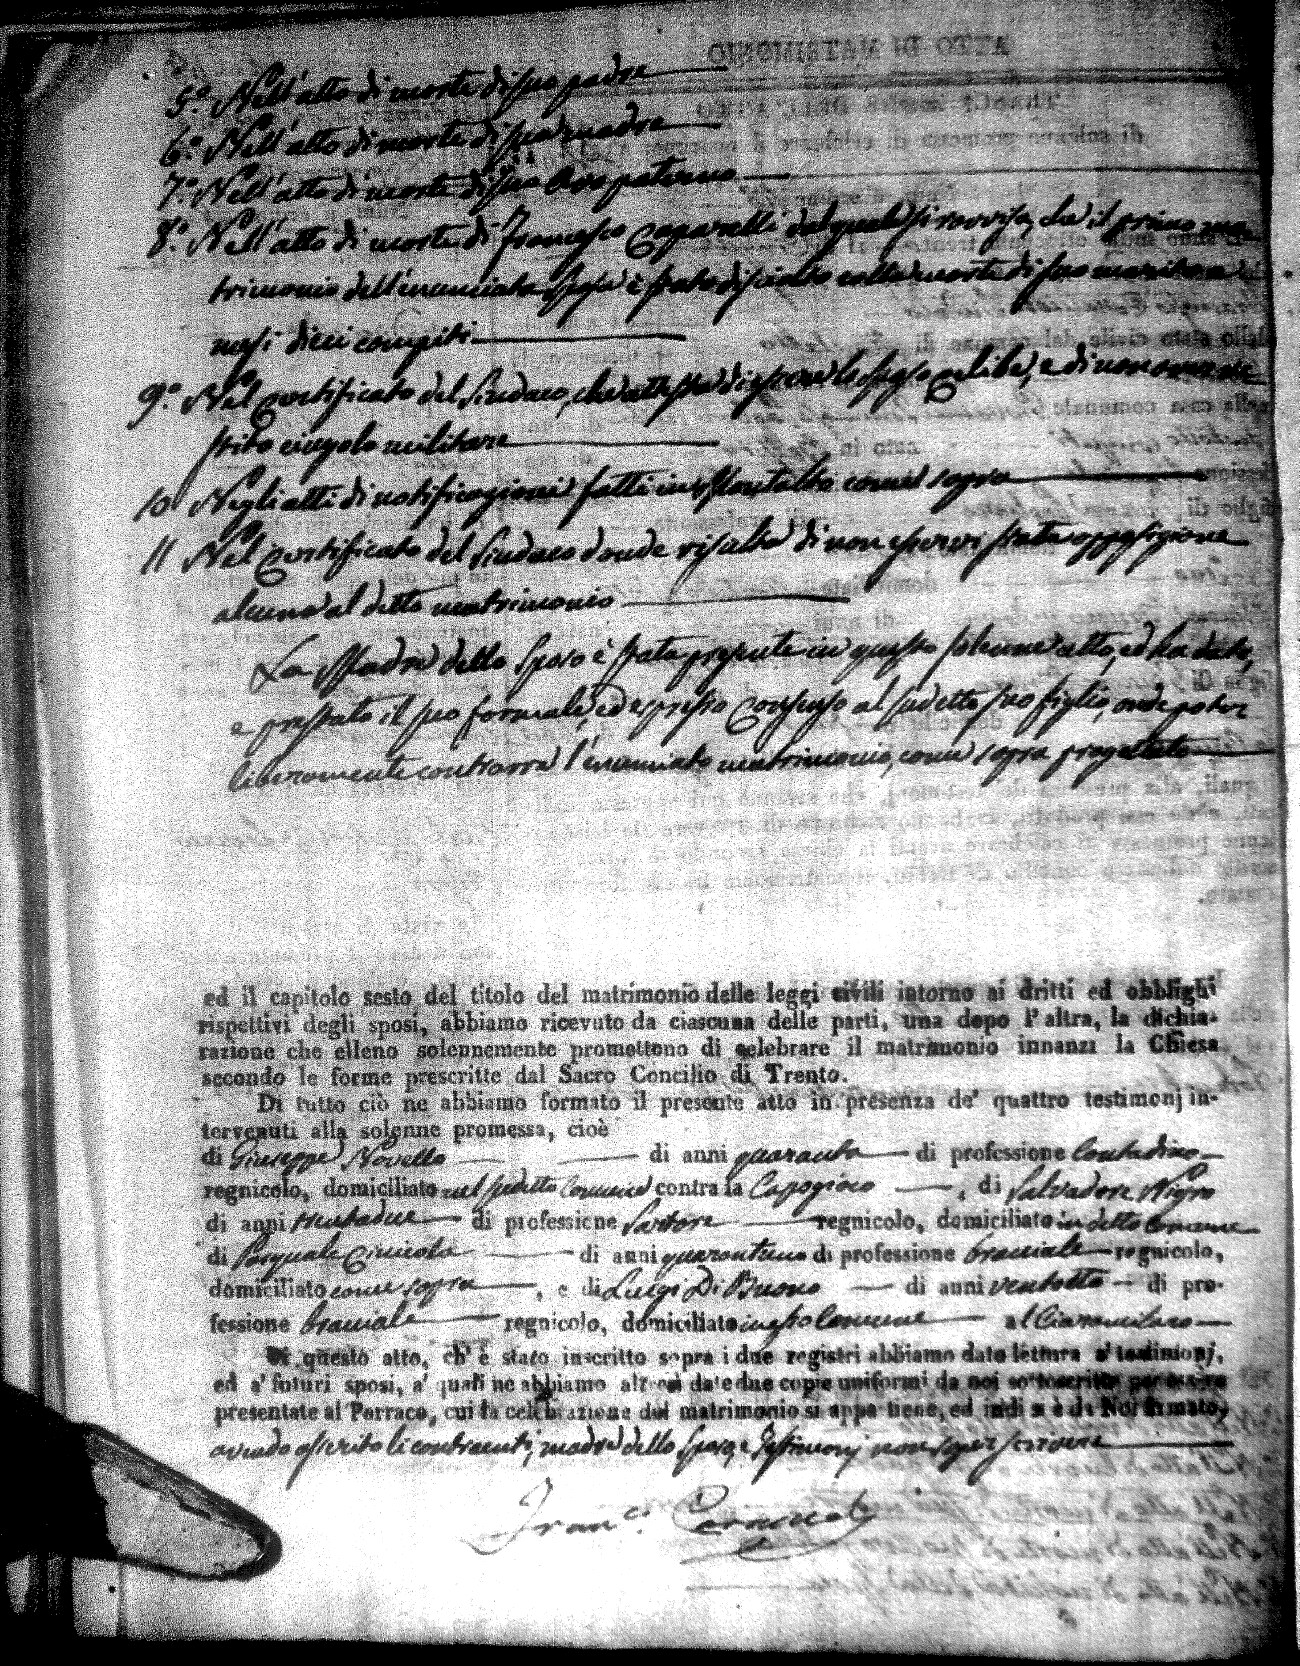 5.° Nell'atto di morte di suo padre
6.° Nell'atto di morte di sua madre
7.° Nell'atto di morte di suo Avo paterno
8.° Nell'atto di morte di Francesco Caparelli dal quale si ravvisa, che il primo ma-
trimonio dell'enunciata sposa è stato disciolto colla morte di suo marito
mesi dieci compiti
9.° Nel Certificato del Sindaco, che attesta di essere lo sposo celibe, e di non
cingolo militare
10 Negli atti di notificazioni fatti in come sopra
11 Nel Certificato del Sindaco donde risulta di non esservi stata opposizione
alcuna al detto matrimonio
La Madre dello Sposo è stata presente in questo solenne atto, ed ha dato,
e prestato il suo formale, ed espresso Consenso al sudetto suo figlio, onde poter
liberamente contrarre l'enunciato matrimonio, come sopra progettato
ed il capitolo sesto del titolo del matrimonio delle leggi civili intorno ai dritti ed obblighi
rispettivi degli sposi, abbiamo ricevuto da ciascuna delle parti, una dopo l'altra, la dichia-
razione che elleno solennemente promettono di celebrare il matrimonio innanzi la Chiesa
secondo le forme prescritte dal Sacro Concilio di Trento.
Di tutto ciò ne abbiamo formato il presente atto in presenza de' quattro testimonj in-
tervenuti alla solenne promessa, cioè
di Giuseppe Novello di anni quaranta di professione Contadino
regnicolo, domiciliato nel sudetto Comune contrada Capogioco, di Salvadore Nigro
di anni trentadue di professione Sartore regnicolo, domiciliato in detto Comune
di Pasquale di anni quarantuno di professione bracciale regnicolo,
domiciliato come sopra, e di Luigi Di Buono di anni ventotto di pro-
fessione bracciale regnicolo, domiciliato in esso Comune
Di questo atto, ch'è stato inscritto sopra i due registri abbiamo dato lettura a' testimonj,
ed a' futuri sposi, a' quali ne abbiamo altresì date due copie uniformi da noi sottoscritte per essere
presentate al Parroco, cui la celebrazione del matrimonio si appartiene, ed indi si è da Noi firmato,
avendo asserito li contraenti, madre dello Sposo, e Testimonj non saper scrivere